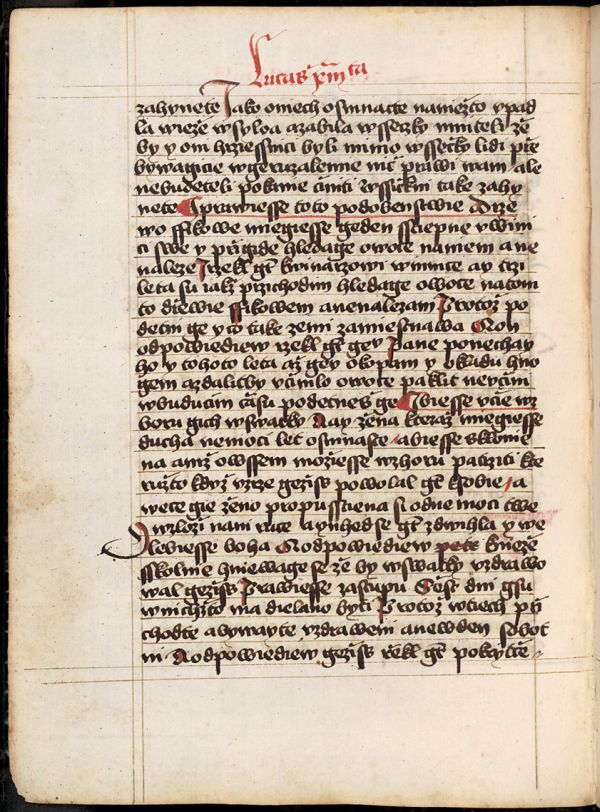 Lucas xiii ta
zahynete Jako oniech osmnacte namiežto vpad
la wieže wsyloa azabila wssecky mniteli že
by y oni hrziessnici byli mimo wssecky lidi přie
bywagicie wgeruzalemie nic prawi wam ale
nebudeteli pokanie činiti wssickni take zahy
nete J prawiesse toto podobenstwie Drze
wo ffikowe miegiesse geden ssciepne vwini
ci swe y přigide hledage owoce namem ane
naleze J rzekl gt kwinarzowi wininice ay trzi
leta su iakž przichodim hledage owoce natom
to dřewie ffikowem anenalezam Protož po
detni ge y co take zemi zamiestnawa A on
odpowiediew rzekl gt gey Pane ponechay
ho y tohoto leta až gey okopam y okladu hno
gem azdaliby včinilo owoce paklit neyčini
wbuducim času podetnes ge J biesse vcie wz
boru gich wswatky A ay žena kteraž miegiesse
ducha nemoci let osmnaste a biesse sklonie
na aniž owssem možiesse wzhoru patrziti kte
ružto když vzrze gežiss powolal gt ksobie / a
wece gie ženo propusstiena si odnemoci twe
wzloži nani ruce aynhed se gt zdwihla y we
lebiesse boha A odpowiediew knieže
sskolnie hniewage se že by wswatky vzdrawo
wal gežiss Prawiesse zastupu Sest dni gsu
wnichžto ma dielano byti Protož wtiech při
chodte abywayte vzdraweni anewden sobot
ni A odpowiediew gežiss řekl gt pokrytče